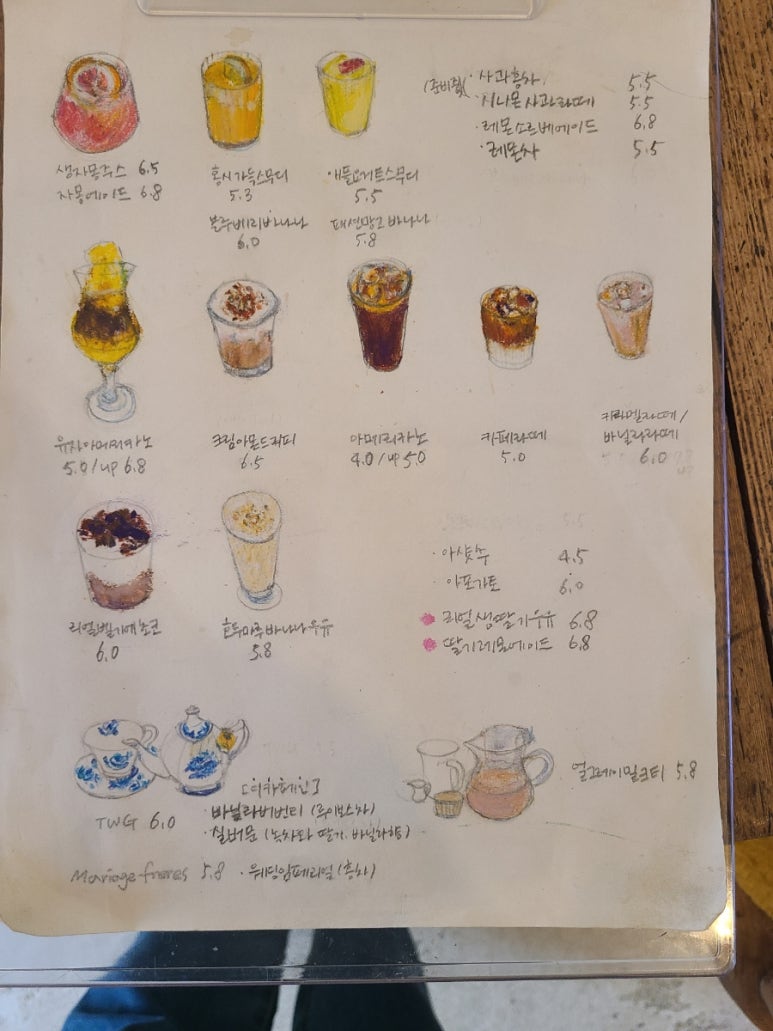 생자몽주스 6.5
자몽에이드 6.8
홍시가득스무디
5.3
블루베리바나나
6.0
애플요거트스무디
5.5
패션망고바나나
5.8
(준비중)
· 사과홍차 5.5
· 시나몬사과라떼 5.5
· 레몬소르베에이드 6.8
· 레몬차 5.5
유자아메리카노
5.0/up 6.8
크림아몬드커피
6.5
아메리카노
4.0/up 5.0
카페라떼
5.0
카라멜라떼/
바닐라라떼
6.0
리얼벨기에초코
6.0
호두마루바나나우유
5.8
· 아샷추 4.5
· 아포가토 6.0
리얼생딸기우유 6.8
딸기레몬에이드 6.8
TWG 6.0
[디카페인]
· 바닐라버번티 (루이보스차)
· 실버문 (녹차와 딸기.바닐라향)
Mariage freres 5.8 · 웨딩임페리얼 (홍차)
얼그레이밀크티 5.8